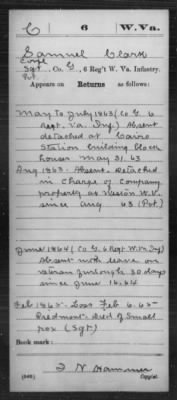 C 6 W.Va.
Samuel Clark
Corpl
Sgt., Co. G, 6 Reg't W. Va. Infantry.
Pvt
Appears on
Returns as follows:
May to July 1863 (Co G. 6
Regt. Va. Inf.) Absent
detached at Cairo
Station building block
houses May 31, 63
Aug 1863. Absent. Detached
in charge of Company
property at W. V.
since Aug 63 (Pvt)
June 1864 (Co G 6 Regt W.Va Inf)
Absent with leave on
veteran furlough 30 days
since June 14, 64
Feb 1865. Loss Feb 6. 65
Piedmont. Died of Small
pox (Sgt)
Book mark:
F N Hammer
(546) Copyist.